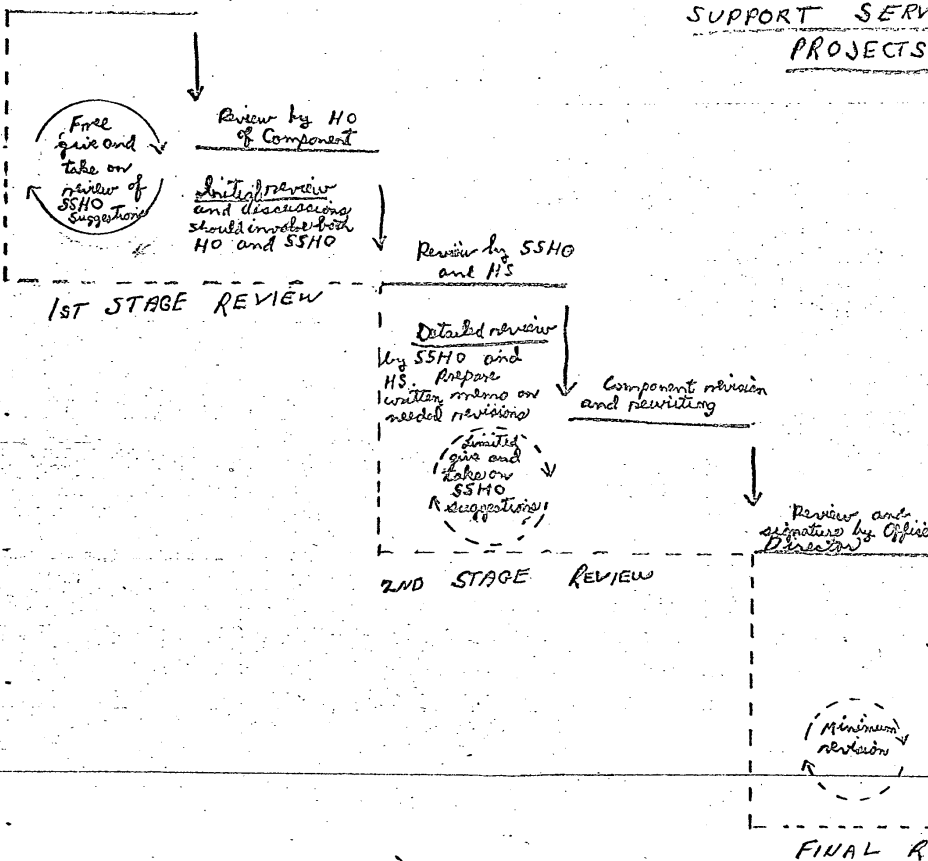 SUPPORT SERV
PROJECTS
Free
give and
take on
review of
SSHO
suggestions
Review by HO
of Component
Initial review
and discussions
should involve both
HO and SSHO
1ST STAGE REVIEW
Review by SSHO
and HS
Detailed review
by SSHO and
HS. Prepare
written memo on
needed revisions
Limited
give and
take on
SSHO
suggestions
Component revision
and rewriting
2ND STAGE REVIEW
Review and
signature by Office
Director
Minimum
revision
FINAL R